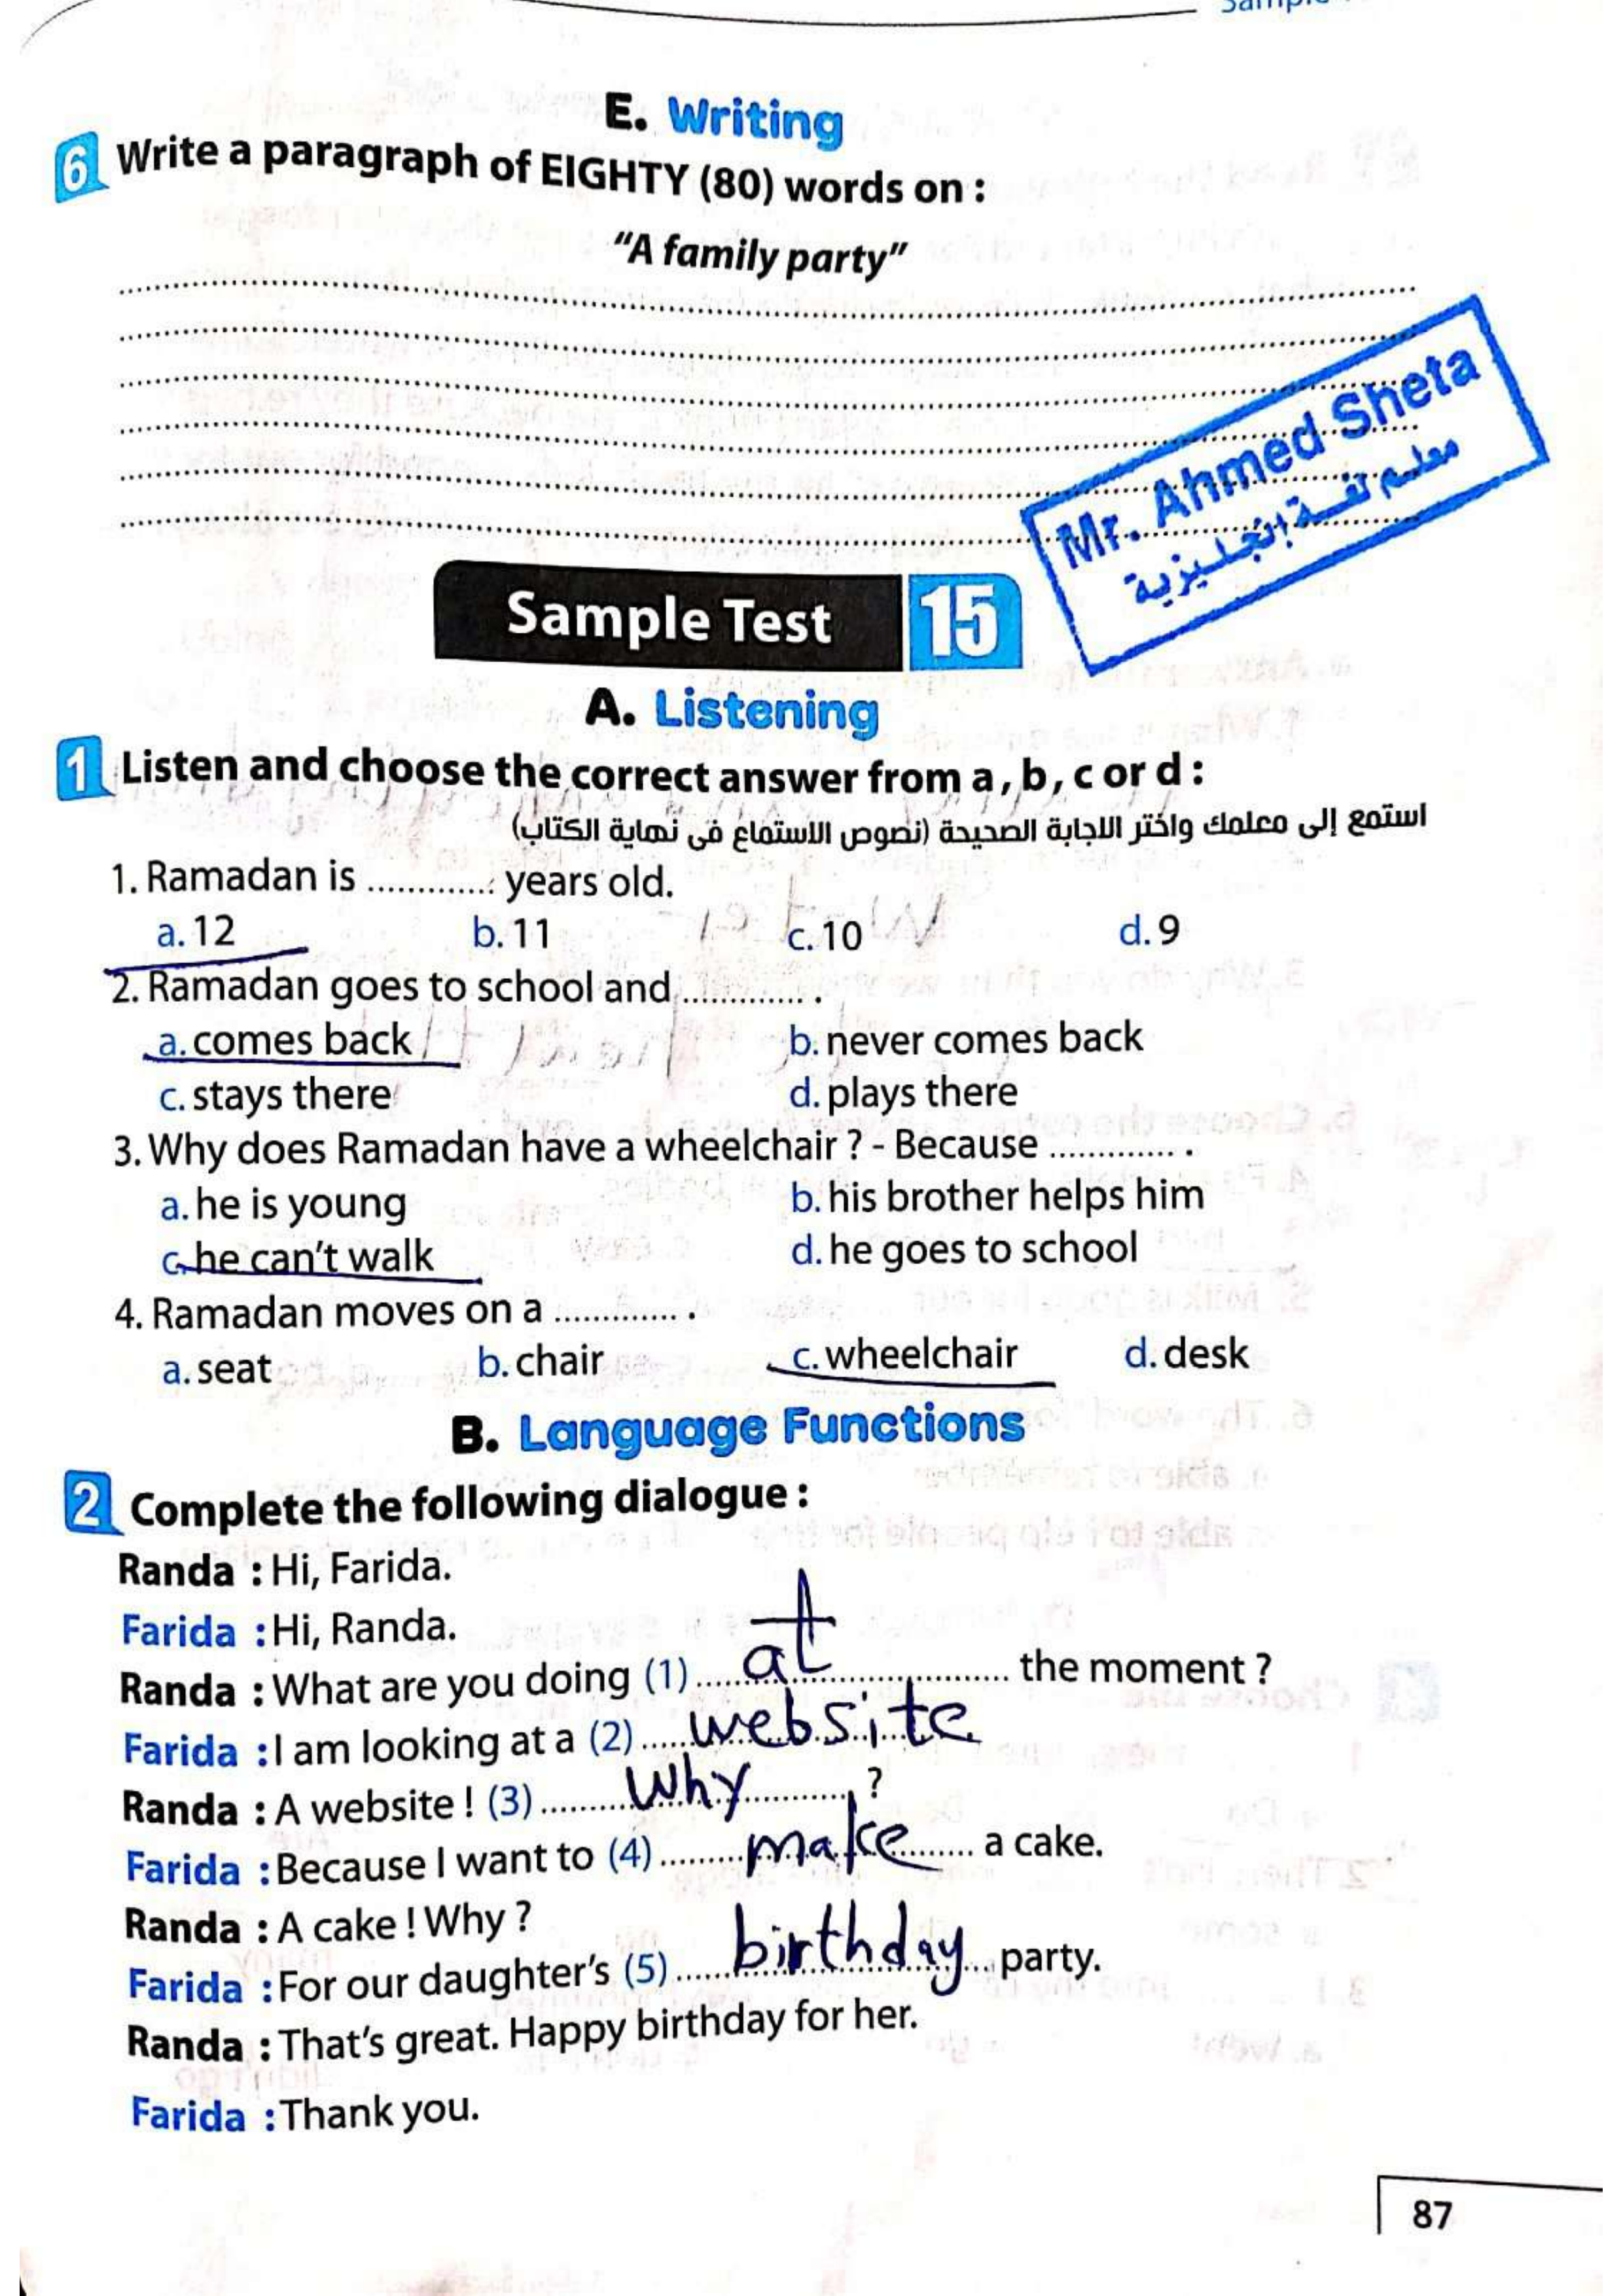 E. Writing
6 Write a paragraph of EIGHTY (80) words on :
"A family party"
Mr. Ahmed Sheta
معلم لغة إنجليزية
Sample Test 15
A. Listening
1 Listen and choose the correct answer from a, b, c or d :
استمع إلى معلمك واختر الاجابة الصحيحة (نصوص الاستماع فى نهاية الكتاب)
1. Ramadan is ............ years old.
a. 12 b. 11 c. 10 d. 9
2. Ramadan goes to school and ............ .
a. comes back b. never comes back
c. stays there d. plays there
3. Why does Ramadan have a wheelchair ? - Because ............ .
a. he is young b. his brother helps him
c. he can't walk d. he goes to school
4. Ramadan moves on a ............ .
a. seat b. chair c. wheelchair d. desk
B. Language Functions
2 Complete the following dialogue :
Randa : Hi, Farida.
Farida : Hi, Randa.
Randa : What are you doing (1) at the moment ?
Farida : I am looking at a (2) website
Randa : A website ! (3) why ?
Farida : Because I want to (4) make a cake.
Randa : A cake ! Why ?
Farida : For our daughter's (5) birthday party.
Randa : That's great. Happy birthday for her.
Farida : Thank you.
87